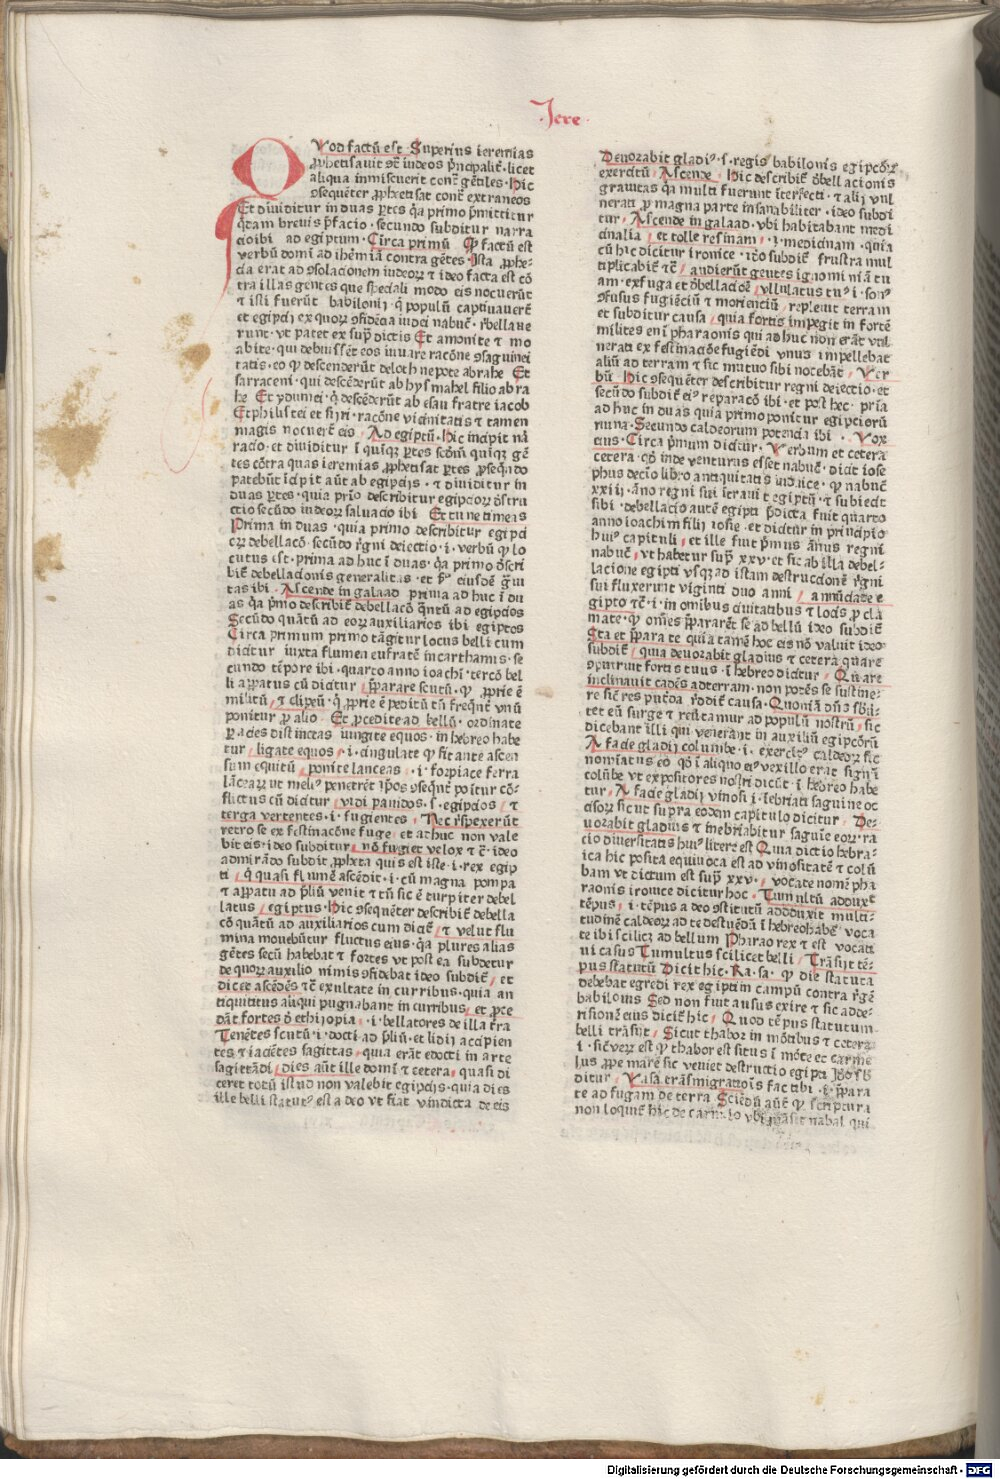 ·Jere·
QVod factū est Superius ieremias
ꝓphetisauit ꝯtͣ iudeos pͥncipalit̄· licet
aliqua inmiscuerit contͣ gētiles· Hic
ꝯsequēter ꝓphetisat contͣ extraneos
Et diuiditur in duas ꝑtes qͣa primo p̄mittitur
qͣdam breuis p̄facio· secundo subditur narra
cio ibi ad egiptum· Circa primū Qꝙ factū est
verbū domī ad ih̓emiā contra gētes· Ista ꝓphe-
cia erat ad ꝯsolacionem iudeoꝝ ⁊ ideo facta est cō
tra illas gentes que speciali modo eis nocuerūt
⁊ isti fuerūt babilonij· qͥ populū captiuauerūt
et egipcij ex quoꝝ ꝯfidēcia iudei nabuc̄· rebellaue
runt· vt patet ex supͣdictis Et amonite ⁊ mo
abite· qui debuissēt eos iuuare racōne ꝯsaguinei
tatis· eo ꝙ descenderūt de loth nepote abrahe Et
sarraceni· qui descēderūt ab hysmahel filio abra
he Et ydumei· qͥ descēderūt ab esau fratre iacob
Et philistei et siri· racōne vicinitatis ⁊ tamen
magis nocuerūt eis· Ad egiptū· Hic incipit nar
racio· et diuiditur ī quīqꝫ ꝑtes scdͫ quīqꝫ gē
tes cōtra quas ieremias ꝓphetisat ꝑtes ꝓseqͣdo
patebūt īcipit aūt ab egipcijs· ⁊ diuiditur in
duas ꝑtes· quia prīo describitur egipcioꝝ ꝺstru
ctio secūdo iudeoꝝ saluacio ibi Et tu ne timeas
Prima in duas· quia primo describitur egipci
oꝝ debellacō· secūdo rͤgni deiectio· i· verbū ꝙ lo
cutus est· prima ad huc ī duas· qͣa primo ꝺscri
bit̄ debellacionis generalitas· et sͦ eiusdē gͣui
tas ibi· Ascende in galaad prima ad huc ī du
as qͣa pͥmo describit̄ debellacō qͣntū ad egipcios
Secūdo quātū ad eoꝝ auxiliarios ibi egiptos
Circa primum primo tāgitur locus belli cum
dicitur iuxta flumen eufratē in carthamis· se
cundo tēpore ibi· quarto anno ioachī· tercō bel
li apꝑatus cū dicitur p̄parare scutū· ꝙ ꝓprie ē
militū, ⁊ clipeū· qͥ ꝓprie ē peditū tn̄ frequēt̄ vnū
ponitur ꝓ alio· Et ꝓcedite ad bellū· ordinate
ꝑ acies distinctas iungite equos· in hebreo habe
tur, ligate equos, · i· cingulate ꝙ fit ante ascen
sum equitū, ponite lanceas, · i· forpiace ferra
lāceaꝝ vt meliꝰ penetrēt ip̄os ꝯseqͣnt̄ poītur cō-
flictus cū dicitur, vidi pauidos· s· egipcios, ⁊
terga vertentes· i· fugientes, Nec rͤspexerūt
retro se ex festinacōne fuge, et ad huc non vale
bit eis· ideo subditur, nō fugiet velox ⁊ c̄· ideo
admirādo subdit ꝓpheta quis est iste· i· rex egip
ti, qͥ quasi flumē ascēdit· i· cū magna pompa
⁊ apꝑatu ad pͥliū venit ⁊ tn̄ sic ē turpiter debel
latus, egiptus· Hic ꝯsequēter describit̄ debella
cō quātū ad auxiliarios cum dicit̄, ⁊ velut flu
mina mouebūtur fluctus eius· qͣa plures alias
gētes secū habebat ⁊ fortes vt post ea subdetur
de quoꝝ auxilio nimis ꝯfidebat ideo subdit̄, et
dicet ascēdēs ⁊c̄ exultate in curribus· quia an
tiquitus aliqui pugnabant in curribus, et ꝓce
dāt fortes ꝺ ethijopia, · i· bellatores de illa t̄ra
Tenētes scutū· i· docti ad pͥliū· et lidij accipien
tes ⁊ iaciētes sagittas, quia erāt edocti in arte
sagittādi, dies aūt ille domī ⁊ cetera, quasi di
ceret totū istud non valebit egipcijs· quia dies
ille belli statutꝰ est a deo vt fiat vindicta de eis
Deuorabit gladiꝰ· s· regis babilonis egipcōꝝ
exercitū, Ascende· Hic describit̄ ꝺbellacionis
grauitas qͣa multi fuerunt īterfecti· ⁊ alij vul
nerati ꝓ magna parte insanabiliter· ideo subdi
tur, Ascende in galaad· vbi habitabant medi
cinalia, et tolle resinam, · i· medicinam· quia
cū hic dicitur ironice· iō subdit̄ frustra mul
tiplicabis ⁊c̄, audierūt gentes ignominiā tu
am· ex fuga et ꝺbellacōe, vllulatus tuꝰ· i· sonꝰ
ꝯfusus fugiēciū ⁊ morienciū, repleuit terram
et subditur causa, quia fortis impegit in fortē
milites enī pharaonis qui ad huc non erāt vul
nerati ex festinacōe fugiēdi vnus impellebat
aliū ad terram ⁊ sic mutuo sibi nocebāt, Ver
bū Hic ꝯsequēter describitur regni deiectio· et
secūdo subdit̄ eiꝰ reparacō ibi· et post hec· pͥma
ad huc in duas quia primo ponitur egipciorū
ruina· Secundo caldeorum potencia ibi· Vox
eius· Circa pͥmum dicitur, Verbum et cetera
cetera· qͦꝺ inde venturus esset nabuc̄· dicit iose
phus decīo libro antiquitatis iudaice· ꝙ nabuc̄
xxiij· āno regni sui ītrauit egiptū· ⁊ subiecit
sibi· debellacio autē egipti pͥdicta fuit quarto
anno ioachim filij iosie· et dicitur in principio
huiꝰ capituli, et ille fuit pͥmus ānus regni
nabuc̄, vt habetur supͣ xxv· et sic ab illa debel-
lacione egipti vsqꝫ ad istam destruccionē rͤgni
sui fluxerunt viginti duo anni, annūciate e
gipto ⁊c̄· i· in omībus ciuitatibus ⁊ locis ꝓ clā
mate· ꝙ om̄es p̄pararēt se ad bellū ideo subdit̄
Sta et p̄para te quia tamē hoc eis nō valuit ideo
subdit̄, quia deuorabit gladius ⁊ cetera quare
ꝯputruit fortis tuus· ī hebreo dicitur, Quare
inclinauit cadēs ad terram· non potēs se sustine-
re sic̄ res putrida rͤdit̄ causa· Quoniā dn̄s sbͥuer
tet eū surge ⁊ reūtamur ad populū nostrū, sic
dicebant illi qui venerant in auxiliū egipcōrū
A facie gladij columbe· i· exercitꝰ caldeoꝝ sic
nomīatus eō qͦꝺ ī aliquo eiꝰ vexillo erat signū ī
colūbe vt expositores nostri dicūt· ī hebreo habe
tur, A facie gladij vinosi· i· īebriati saguine oc
cisoꝝ sicut supra eodem capitulo dicitur, De-
uorabit gladius ⁊ inebriabitur saguīe eoꝝ· ra
cio diuersitatis huiꝰ litere est Quia dictio hebra-
ica hic posita equiuoca est ad vinositatē ⁊ colū
bam vt dictum est supͣ xxv·, vocate nomē pha
raonis ironice dicitur hoc, Tumultū adduxit
tēpus, i· tēpus a deo ꝯstitutū addduxit multi-
tudinē caldeoꝝ ad te destruēdū ī hebreo habet̄ voca
te ibi scilicꝫ ad bellum Pharao rex ⁊ est vocati
ui casus Tumultus scilicet belli, Trāsijt tē-
pus statutū Dicit hic· Ra· sa· ꝙ die statuta
debebat egredi rex egipti in campū contra rͤgē
babilonis Sed non fuit ausus exire ⁊ sic ad de-
risionē eius dicit̄ hic, Quod tēpus statutum
belli trāsijt, Sicut thabor in mōtibus ⁊ cetera
· i· sic̄ verū est ꝙ thabor est situs ī mōte et carme
lus ꝓpe mare sic veniet destructio egipti Ideo sb
ditur, Vasa trāsmigratiōis fac tibi· i· p̄para
te ad fugam de terra Sciēdū aūt ꝙ scriptura
non loquit̄ hic de carmelo vbi māsit nabal qui
Digitalisierung gefördert durch die Deutsche Forschungsgemeinschaft - DFG